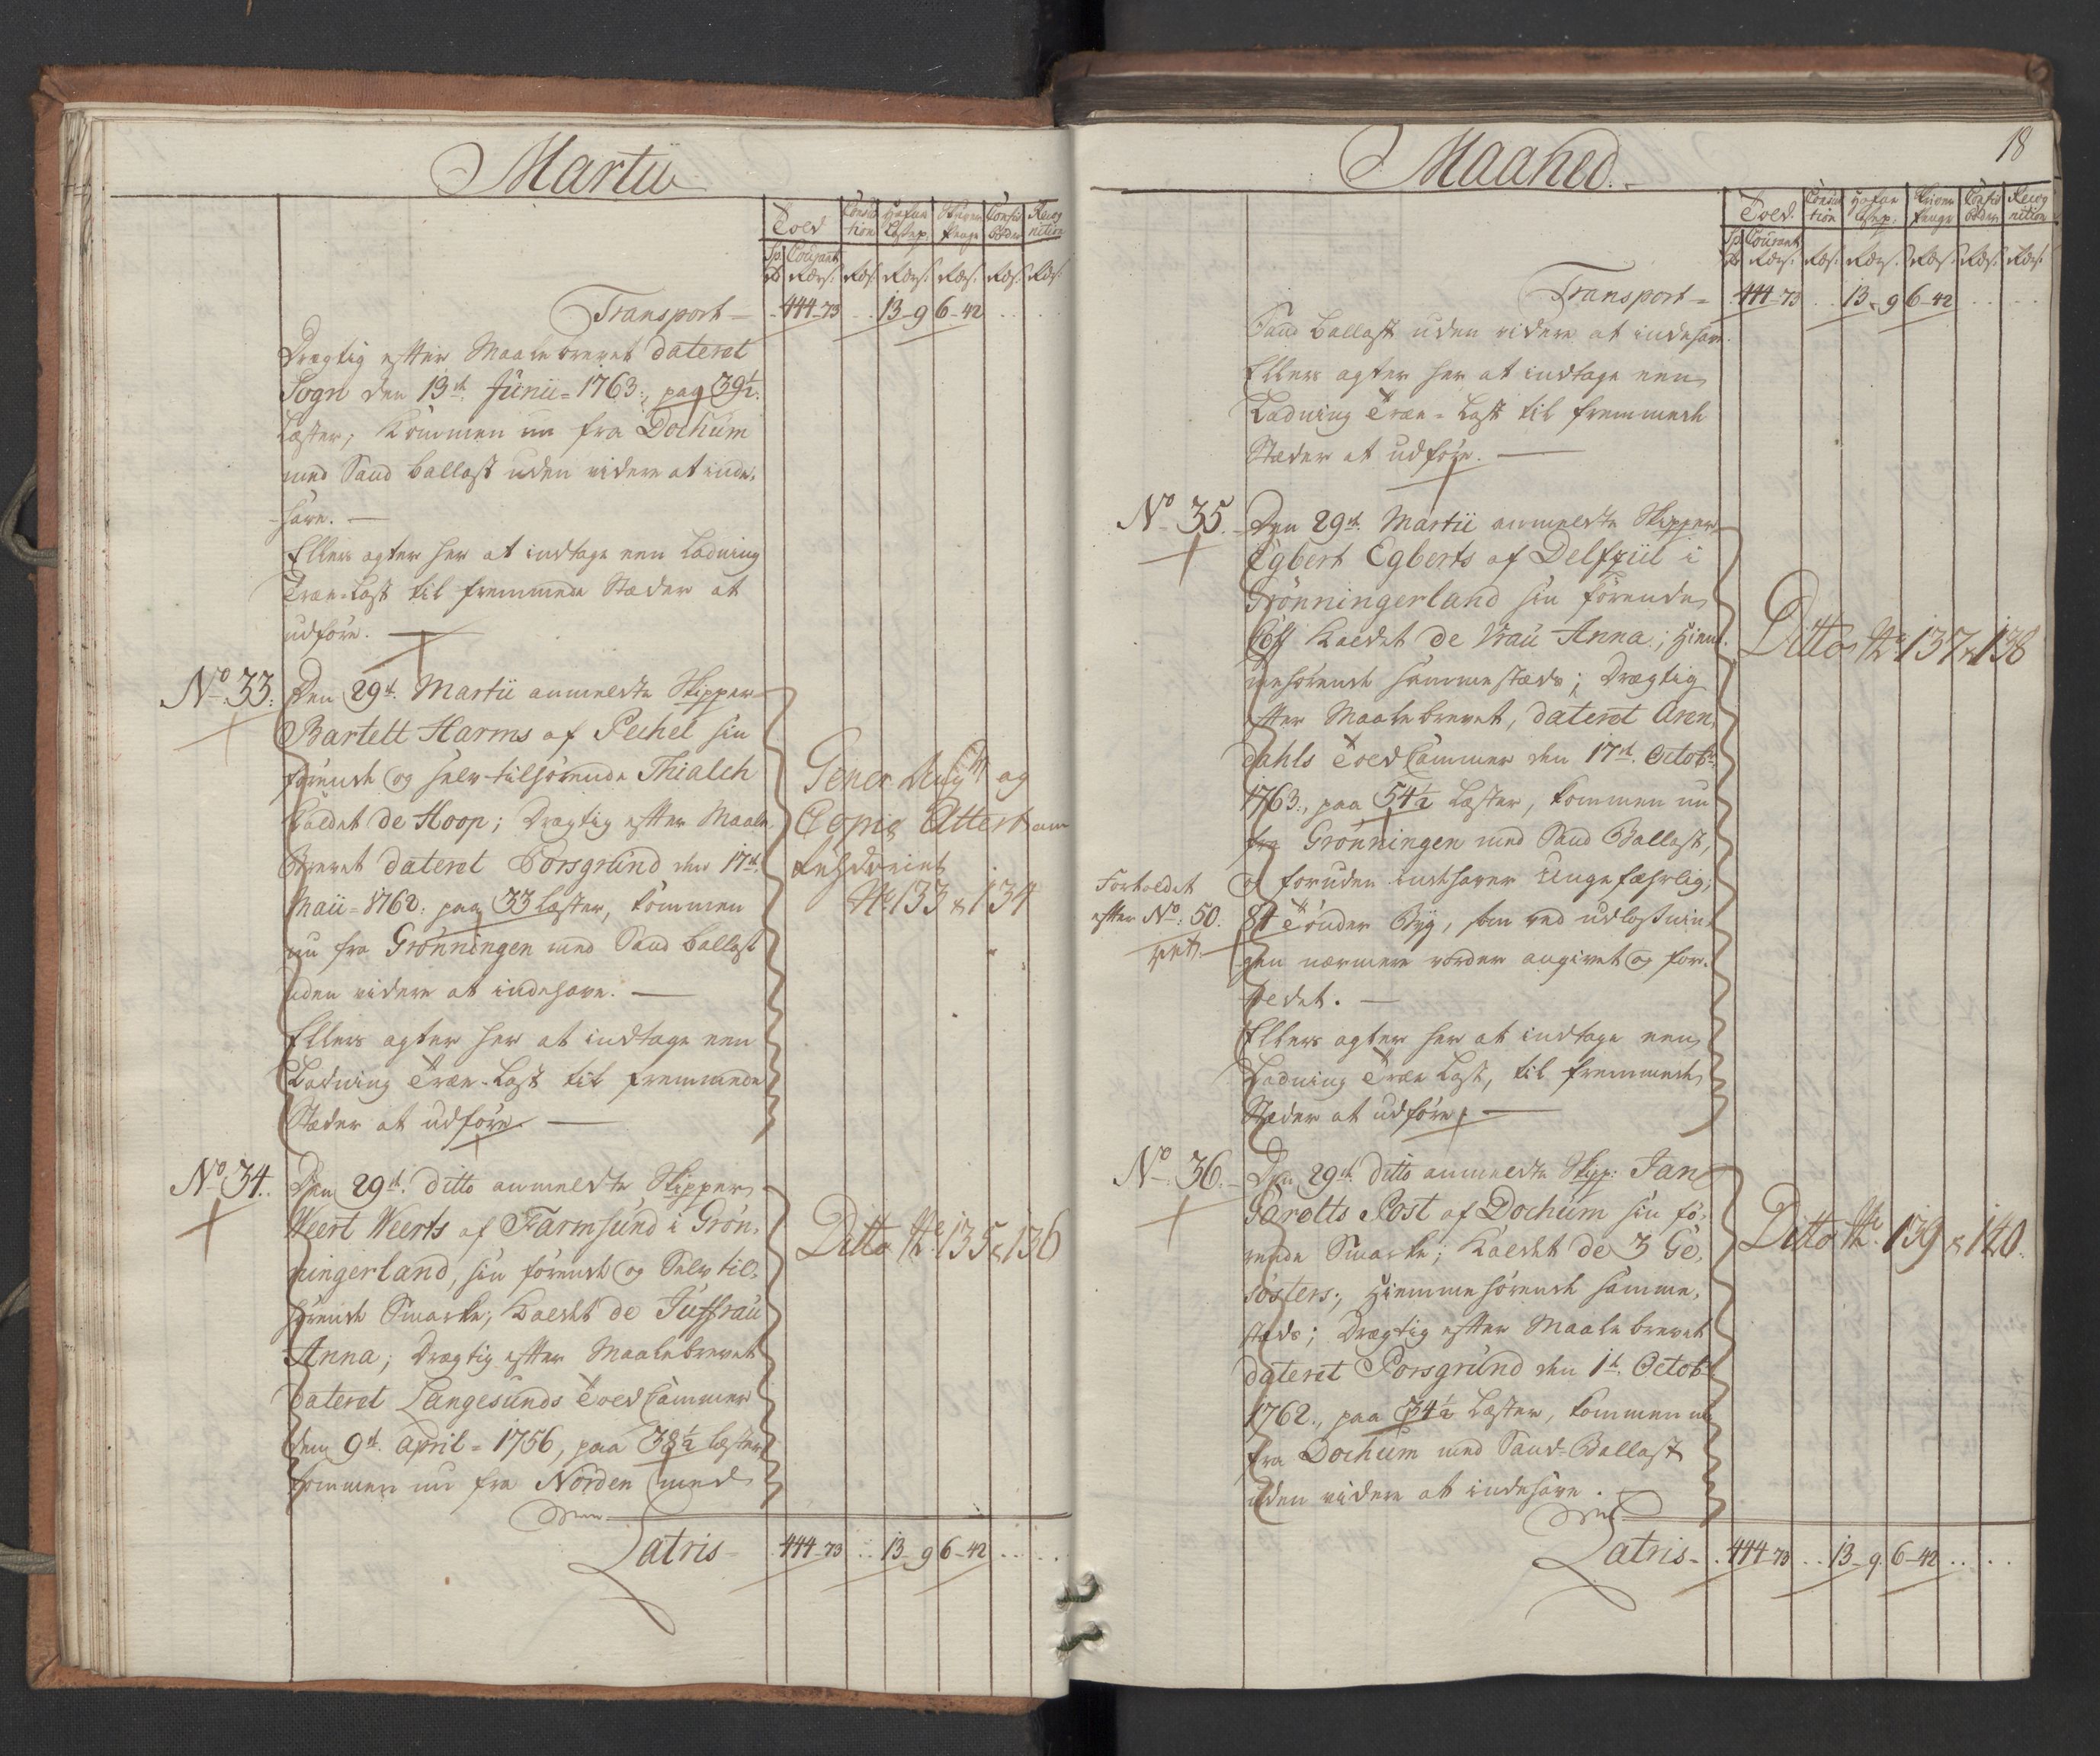 Martii
Told
Transport = 444-73 .. 13-9 6-42 . . . .
Drægtig efter Maalebrevet dateret
Sogn den 13de Junii = 1763:, paa 39½
Læster, kommen nu fra Dochum
med Sand ballast uden videre at inde-
have. —
Ellers agter her at indtage een Ladning
Træe-Last til fremmede Stæder at
udføre. —
No 33. Den 29de Martii anmeldte Skipper
Bartelt Harms af Pechel sin
førende og selv tilhørende Thialch
kaldet de Hoop; Drægtig efter Maale-
Brevet dateret Porsgrund den 17de
Maii = 1762: paa 33 Læster, kommen
nu fra Grønningen med Sand ballast
uden videre at indehave. —
Ellers agter her at indtage een
Ladning Træe-Last til fremmede
Stæder at udføre. —
og
Copie
No 133 & 134
No 34. Den 29de ditto anmeldte Skipper
Weert Weerts af Farmsund i Grøn-
ningerland, sin førende og Selv til-
hørende Smakke, kaldet de Juffrau
Anna; Drægtig efter Maalebrevet
dateret Langesunds Told Cammer
dem 9de April = 1756, paa 38½ Læster
kommen nu fra Norden med
Ditto No 135 & 136
Latris - 444-73 .. 13-9 6-42 . . . .
Maaned.
18
Told.
Transport = 444-73 .. 13-9 6-42 . . . .
Sand ballast uden videre at indehave.
Ellers agter her at indtage een
Ladning Træe-Last til fremmede
Stæder at udføre. —
No 35. Den 29de Martii anmeldte Skipper
Egbert Egberts af Delfziil i
Grønningerland sin førende
Coff kaldet de Vrau Anna; Hiem-
mehørende sammestæds; Drægtig
efter Maalebrevet, dateret Aren-
dahls Told Cammer den 17de Octobr
1763:, paa 54½ Læster, kommen nu
fra Grønningen med Sand Ballast,
og foruden indehaver Ungefæhrlig
84 Tønder Byg, som ved udlosnin-
gen nærmere vorder angivet og for-
toldet. —
Ellers agter her at indtage een
Ladning Træe Last, til fremmede
Stæder at udføre. —
Fortoldet
efter No: 50.
Ditto No 137 & 138
No 36. Den 29de Ditto anmeldte Skipp: Jan
Garelts Post af Dochum sin fø-
rende Smakke; kaldet de 3 Ge-
sösters; Hiemmehørende samme-
stæds; Drægtig efter Maalebrevet
dateret Porsgrund den 1de Octobr
1762., paa 34½ Læster, kommen nu
fra Dochum med Sand-Ballast
uden videre at indehave. —
Ditto No 139 & 140.
Latris - . 444-73 .. 13-9. 6-42 . . . .